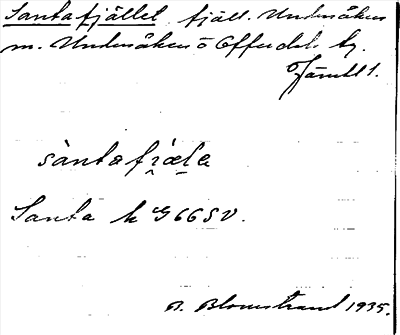 Santafjället fjäll. Undersåkers
m. Undersåkers o Offerdals tg.
Jämtl.
sàntafi̯æl̠a
Santa k G66SV.
B. Blomstrand 1935.